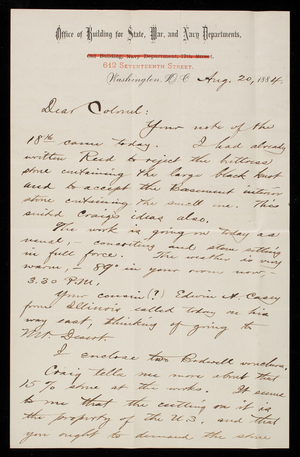 Office of Building for State, War, and Navy Departments,
Old Building, Navy Department, 17th Street,
612 SEVENTEENTH STREET.
Washington, D.C. Aug. 20, 1884.
Dear Colonel:
Your note of the
18th came today. I had already
written Reed to reject the buttress
stone containing the large black knot
and to accept the basement interior
stone containing the small one. This
suited Craig's ideas also.
The work is going on today as
usual, – concreting and stone setting
in full force. The weather is very
warm, – 89° in your room now, –
3.30 P.M.
Your cousin (?) Edwin A. Casey
from Illinois called today on his
way east, thinking of going to
Mt. Desert.
I enclose two Bodwell vouchers.
Craig tells me more about that
15% stone at the works. It seems
to me that the cutting on it is
the property of the U.S. and that
you ought to demand the stone